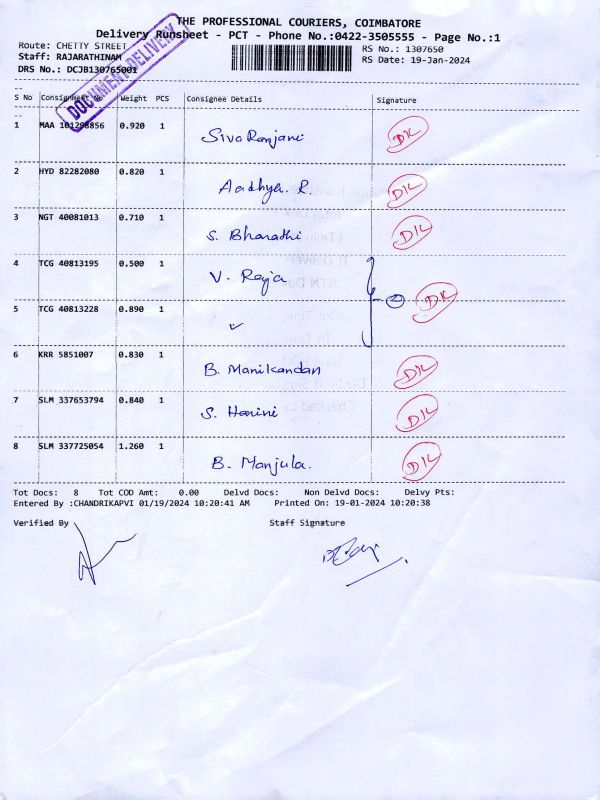 THE PROFESSIONAL COURIERS, COIMBATORE
Delivery Runsheet - PCT - Phone No.:0422-3505555 - Page No.:1
Route: CHETTY STREET
RS No.: 1307650
Staff: RAJARATHINAM
RS Date: 19-Jan-2024
DRS No.: DCJB130765001
DOCUMENT DELIVERY
S No Consignment No Weight PCS Consignee Details Signature
1 MAA 101298856 0.920 1
Sivaranjani DK
2 HYD 82282080 0.820 1
Aadhya. R. DK
3 NGT 40081013 0.710 1
S. Bharathi DK
4 TCG 40813195 0.500 1
V. Raja
2 DK
5 TCG 40813228 0.890 1
6 KRR 5851007 0.830 1
B. Manikandan DK
7 SLM 337653794 0.840 1
S. Harini DK
8 SLM 337725054 1.260 1
B. Manjula. DK
Tot Docs: 8 Tot COD Amt: 0.00 Delvd Docs: Non Delvd Docs: Delvy Pts:
Entered By :CHANDRIKAPVI 01/19/2024 10:20:41 AM Printed On: 19-01-2024 10:20:38
Verified By Staff Signature